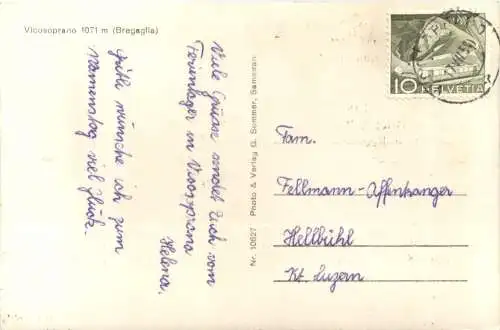 Vicosoprano 1071 m (Bregaglia)
Viele Grüsse sendet Euch vom
Ferienlager in Vicosprano
Helena.
wünsche ich zum
Namenstag viel Glück.
Nr. 10627 Photo & Verlag G. Sommer, Samedan
10
HELVETIA
Fam.
Fellmann-Affentranger
Hellbühl
Kt. Luzern